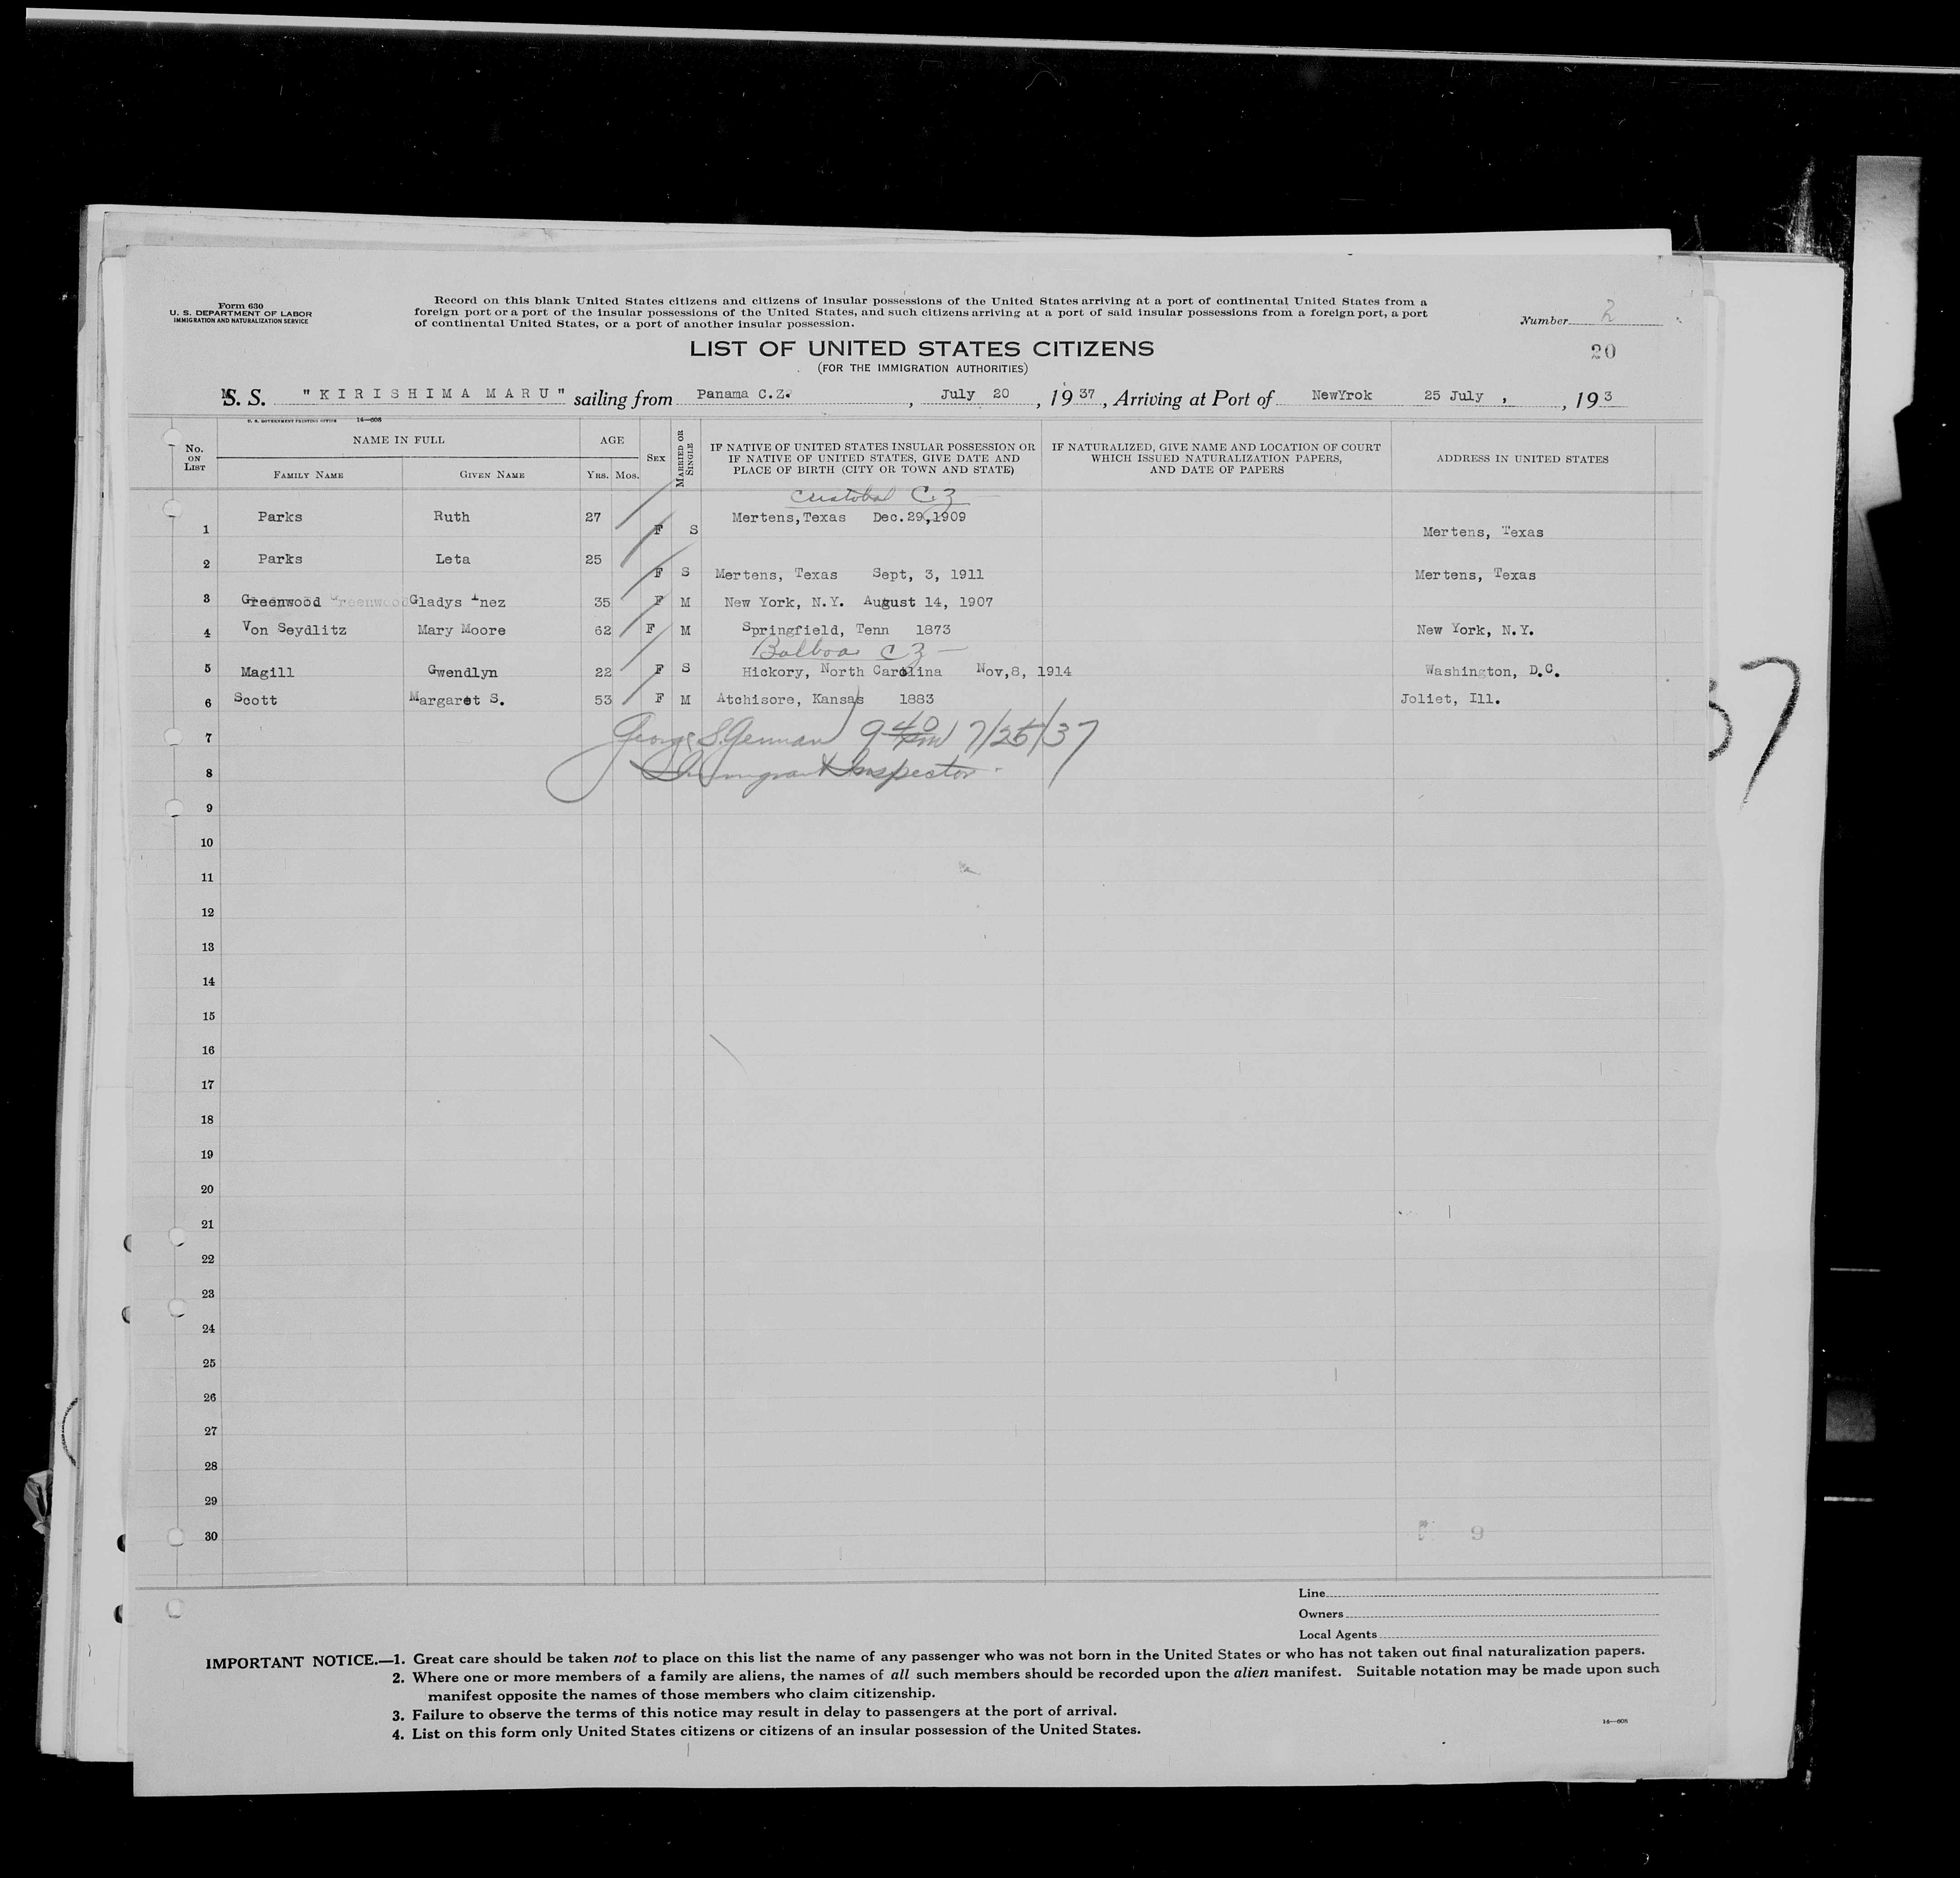 Form 630
U. S. DEPARTMENT OF LABOR
IMMIGRATION AND NATURALIZATION SERVICE
Record on this blank United States citizens and citizens of insular possessions of the United States arriving at a port of continental United States from a
foreign port or a port of the insular possessions of the United States, and such citizens arriving at a port of said insular possessions from a foreign port, a port
of continental United States, or a port of another insular possession.
Number 2
LIST OF UNITED STATES CITIZENS
20
(FOR THE IMMIGRATION AUTHORITIES)
S. S. "KIRISHIMA MARU" sailing from Panama C.Z. , July 20 , 1937, Arriving at Port of NewYrok 25 July , , 193
U. S. GOVERNMENT PRINTING OFFICE 14—608
No. ON LIST
NAME IN FULL
FAMILY NAME GIVEN NAME
AGE
YRS. MOS.
SEX
MARRIED OR SINGLE
IF NATIVE OF UNITED STATES INSULAR POSSESSION OR
IF NATIVE OF UNITED STATES, GIVE DATE AND
PLACE OF BIRTH (CITY OR TOWN AND STATE)
IF NATURALIZED, GIVE NAME AND LOCATION OF COURT
WHICH ISSUED NATURALIZATION PAPERS,
AND DATE OF PAPERS
ADDRESS IN UNITED STATES
Cristobal C.Z
1 Parks Ruth 27 F S Mertens,Texas Dec.29,1909 Mertens, Texas
2 Parks Leta 25 F S Mertens, Texas Sept, 3, 1911 Mertens, Texas
3 Greenwood Greenwood Gladys Inez 35 F M New York, N.Y. August 14, 1907
4 Von Seydlitz Mary Moore 62 F M Springfield, Tenn 1873 New York, N.Y.
Balboa C Z
5 Magill Gwendlyn 22 F S Hickory, North Carolina Nov,8, 1914 Washington, D.C.
6 Scott Margaret S. 53 F M Atchisore, Kansas 1883 Joliet, Ill.
7 George S. German 9 40 7/25/37
8 Immigrant Inspector
9
10
11
12
13
14
15
16
17
18
19
20
21
22
23
24
25
26
27
28
29
30
9
Line
Owners
Local Agents
IMPORTANT NOTICE.—1. Great care should be taken not to place on this list the name of any passenger who was not born in the United States or who has not taken out final naturalization papers.
2. Where one or more members of a family are aliens, the names of all such members should be recorded upon the alien manifest. Suitable notation may be made upon such
manifest opposite the names of those members who claim citizenship.
3. Failure to observe the terms of this notice may result in delay to passengers at the port of arrival.
4. List on this form only United States citizens or citizens of an insular possession of the United States.
14—608
37